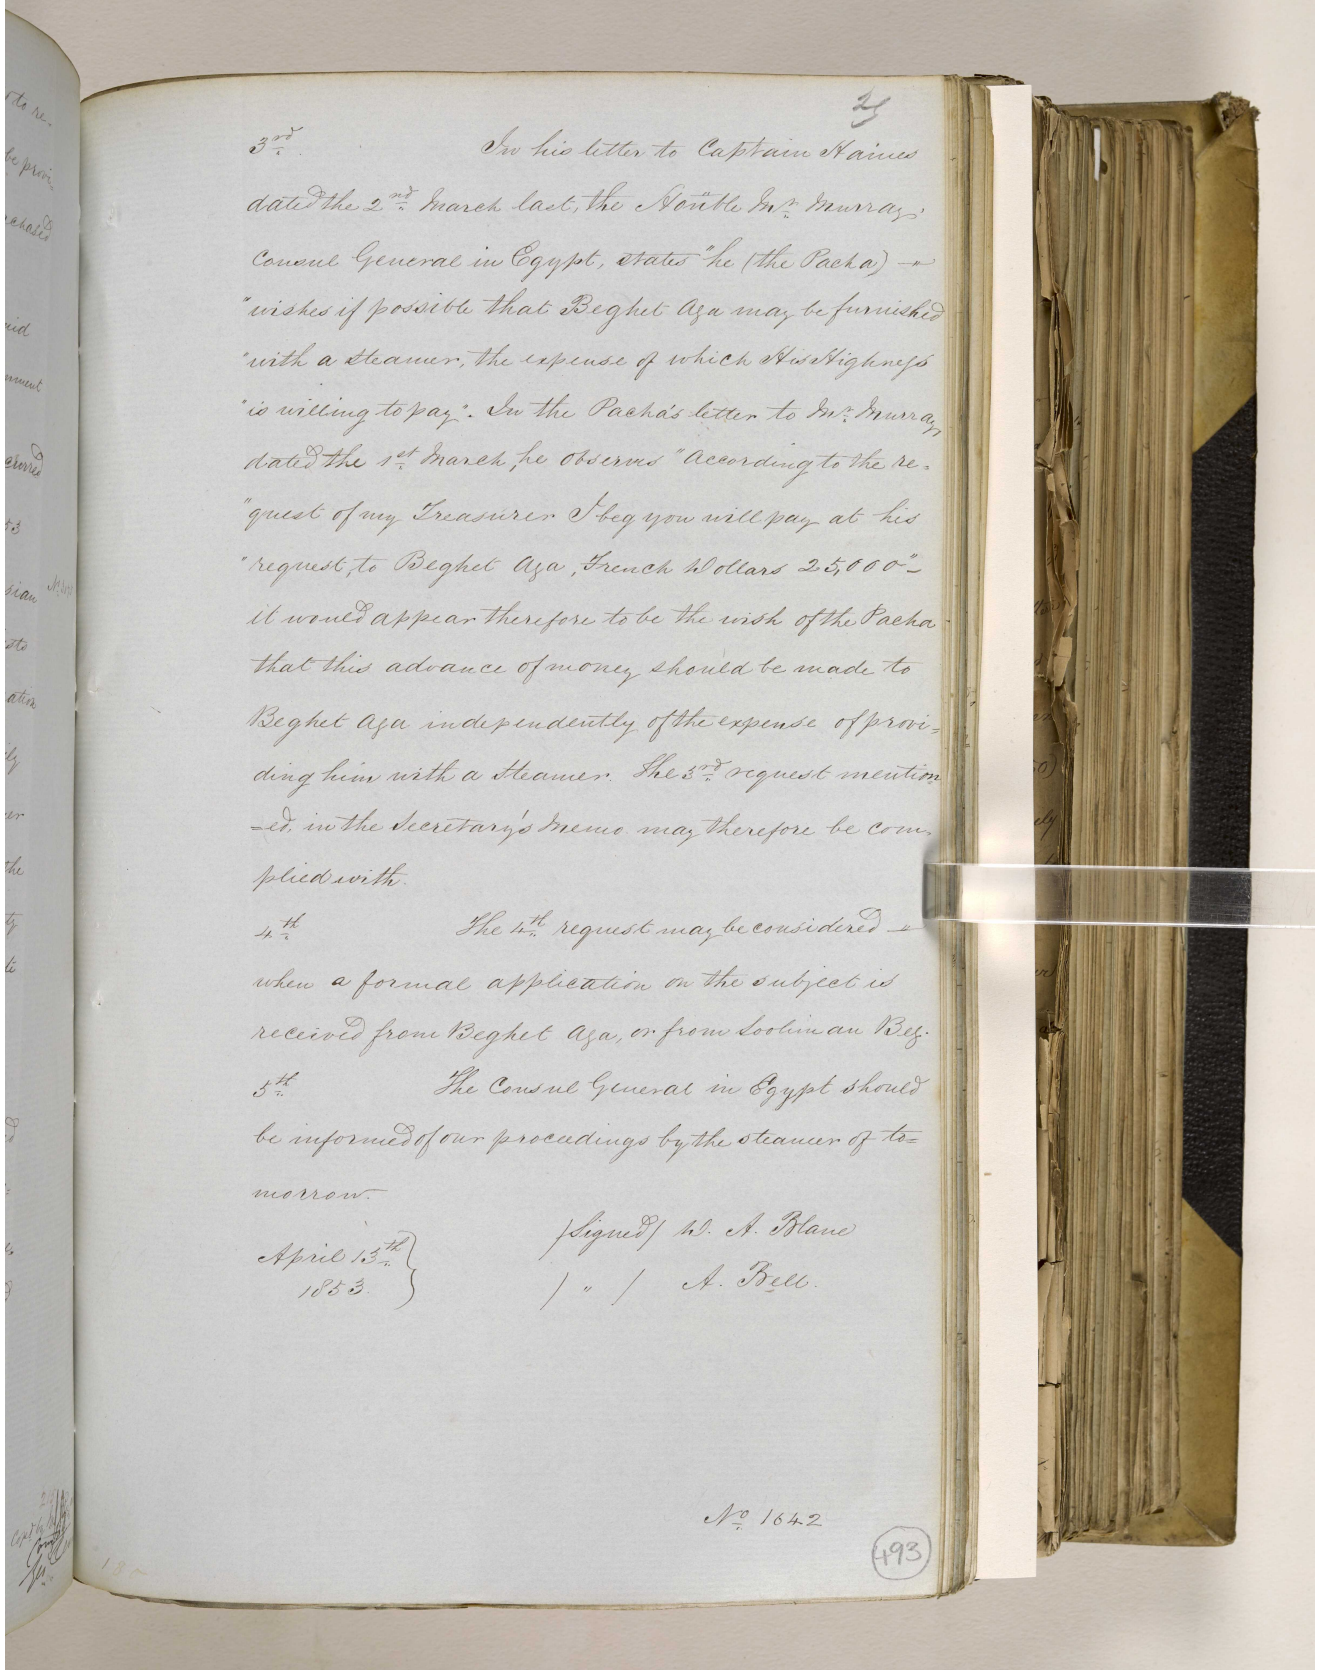 25
3rd. In his letter to Captain Haines
dated the 2nd. March last, the Hon'ble Mr. Murray,
Consul General in Egypt, states "he (the Pacha) —"
"wishes if possible that Beghet Aga may be furnished
"with a Steamer, the expense of which His Highness
"is willing to pay". In the Pacha's letter to Mr. Murray,
dated the 1st. March, he observes "According to the re-
"quest of my Treasurer I beg you will pay at his
"request, to Beghet Aga, French Dollars 25,000" –
it would appear therefore to be the wish of the Pacha
that this advance of money should be made to
Beghet Aga independently of the expense of provi=
ding him with a Steamer. The 3rd. request mention
=ed, in the Secretary's Memo. may therefore be com-
plied with.
4th. The 4th. request may be considered —"
when a formal application on the subject is
received from Beghet Aga, or from Soolim an Bey.
5th. The Consul General in Egypt should
be informed of our proceedings by the steamer of to=
morrow.
/Signed/ D. A. Blane
April 13th.
1853.
/ " / A. Bell.
No. 1642
493